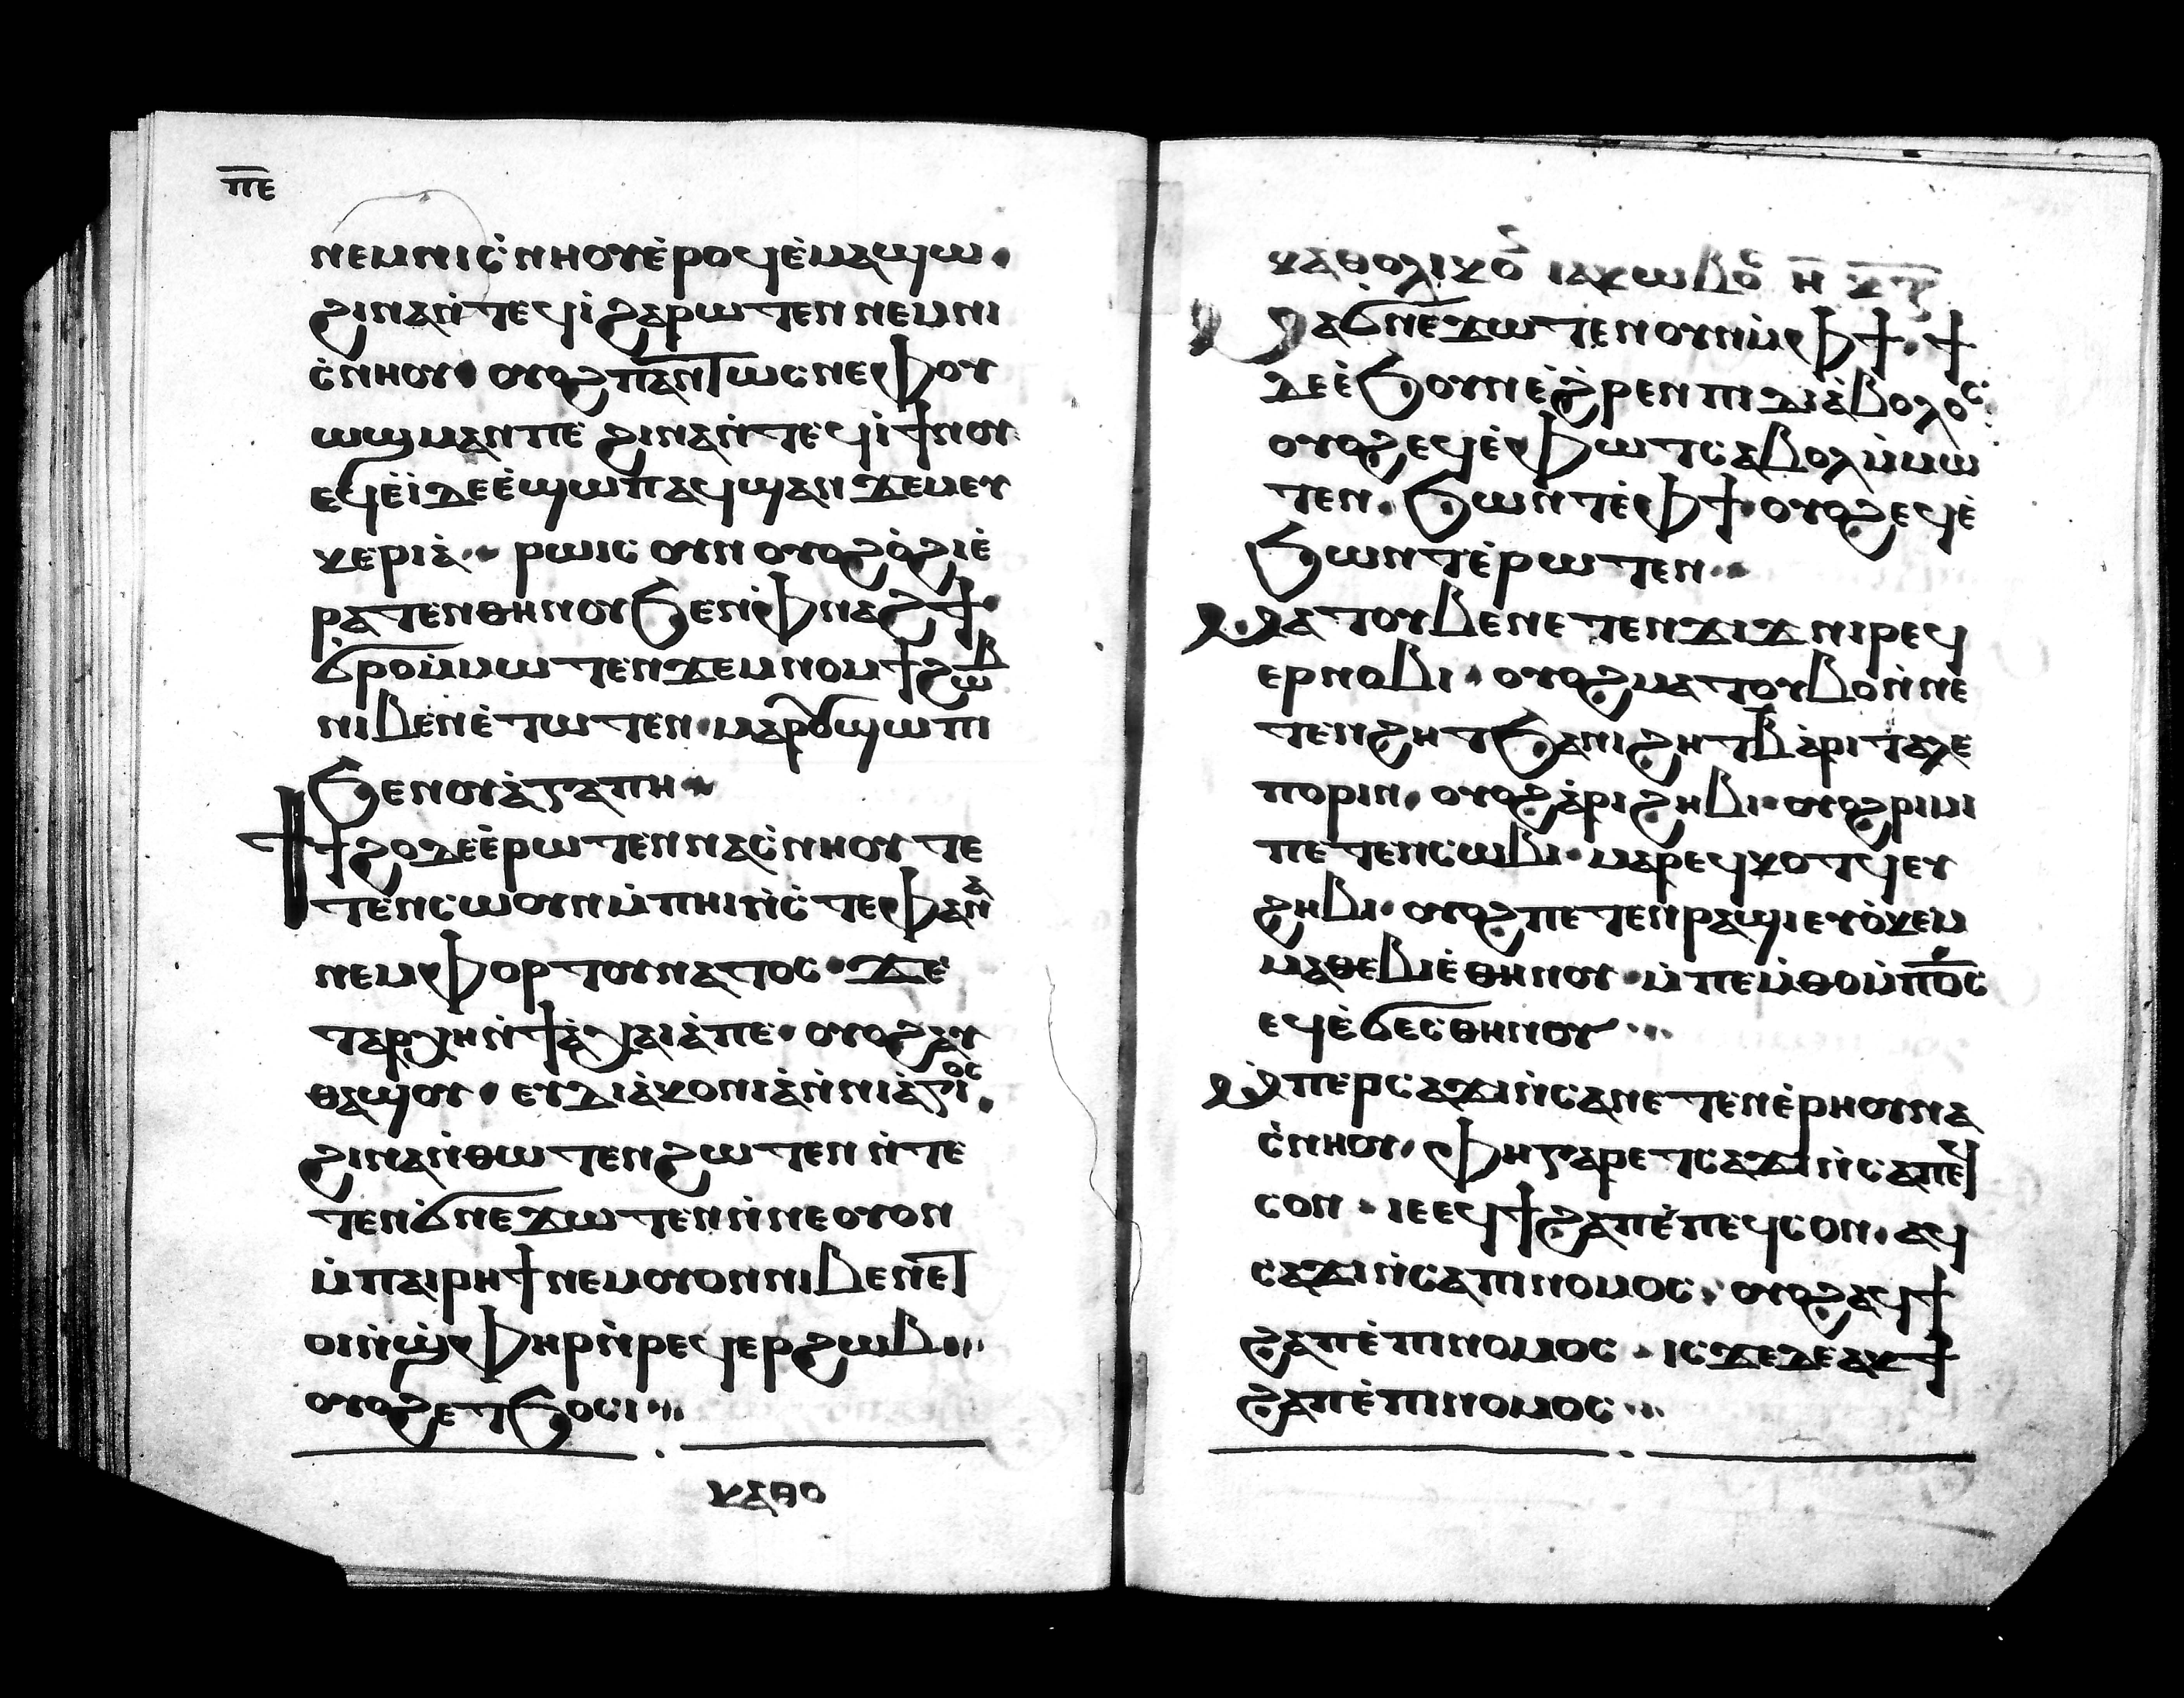 ⲡ̅ⲉ̅
ⲛⲉⲙⲛⲓⲥ̀ⲛⲏⲟⲩⲉ̀ⲣⲟϥⲉ̀ⲙⲁϣⲱ·
ϩⲓⲛⲁⲛ̀ⲧⲉϥⲓ̀ϩⲁⲣⲱⲧⲉⲛⲛⲉⲙⲛⲓ
ⲥ̀ⲛⲏⲟⲩ· ⲟⲩⲟϩⲡⲁⲛⲧⲱⲥⲛⲉⲫⲟⲩ
ⲱϣⲙⲁⲛⲡⲉ ϩⲓⲛⲁⲛ̀ⲧⲉϥⲓ̀ϯⲛⲟⲩ
ⲉϥⲉ̀ⲓ̀ⲇⲉⲉ̀ϣⲱⲡⲁϥϣⲁⲛϫⲉⲙⲉⲩ
ⲕⲉⲣⲓⲁ̀· ⲣⲱⲓⲥ ⲟⲩⲛ ⲟⲩⲟϩⲟ̀ϩⲓⲉ̀
ⲣⲁⲧⲉⲛⲑⲏⲛⲟⲩϧⲉⲛⲫⲛⲁϩϯ·
ϭⲣⲟⲙ̀ⲙⲱⲧⲉⲛϫⲉⲙⲛⲟⲙϯϩⲱⲃ
ⲛⲓⲃⲉⲛⲉ̀ⲧⲱⲧⲉⲛ·ⲙⲁⲣⲟⲩϣⲱⲡⲓ
ϧⲉⲛⲟⲩⲁ̀ⲅⲁⲡⲏ·
ϯϯϩⲟⲇⲉⲉ̀ⲣⲱⲧⲉⲛⲛⲁⲥ̀ⲛⲏⲟⲩ ⲧⲉ
ⲧⲉⲛⲥⲱⲟⲩⲛⲙ̀ⲡⲏⲓⲛ̀ⲥ̀ⲧⲉⲫⲁⲛⲁ
ⲛⲉⲙⲫⲟⲣⲧⲟⲩⲛⲁⲧⲟⲥ· ϫⲉ
ⲧⲁⲣⲭⲏⲛ̀ϯⲁ̀ⲭⲁⲓⲁ̀ⲡⲉ· ⲟⲩⲟϩⲁⲩ
ⲑⲁϣⲟⲩ· ⲉⲩⲇⲓⲁ̀ⲕⲟⲛⲓⲁ̀ⲛ̀ⲛⲓⲁ̀ⲅⲓⲟⲥ·
ϩⲓⲛⲁⲛ̀ⲑⲱⲧⲉⲛϩⲱⲧⲉⲛ ⲛ̀ⲧⲉ
ⲧⲉⲛϭ̀ⲛⲉϫⲱⲧⲉⲛⲛ̀ⲛⲉⲟⲩⲟⲛ
ⲙ̀ⲡⲁⲓⲣⲏϯⲛⲉⲙⲟⲩⲟⲛⲛⲓⲃⲉⲛⲉⲧ
ⲟⲓⲛ̀ϣ̀ⲫⲏⲣⲛ̀ⲣⲉϥⲉⲣϩⲱⲃ
ⲟⲩⲟϩⲉⲧϧⲟⲥⲓ
ⲕⲁⲑⲟ
ⲕⲁⲑⲟⲗⲓⲕⲟⲛ ⲓⲁⲕⲱⲃⲟⲥ
ⲙⲁϭ̀ⲛⲉϫⲱⲧⲉⲛⲟⲩⲛⲙ̀ⲫϯ·ϯ
ⲇⲉⲉ̀ϧⲟⲩⲛⲉ̀ϩ̀ⲣⲉⲛⲡⲓⲇⲓⲁ̀ⲃⲟⲗⲟⲥ:
ⲟⲩⲟϩⲉϥⲉ̀ⲫⲱⲧⲥⲁⲃⲟⲗⲙ̀ⲙⲱ
ⲧⲉⲛ· ϧⲱⲛⲧⲉ̀ⲫϯ·ⲟⲩⲟϩⲉϥⲉ̀
ϧⲱⲛⲧⲉ̀ⲣⲱⲧⲉⲛ·
ⲙⲁⲧⲟⲩⲃⲉⲛⲉⲧⲉⲛϫⲓϫⲛⲓⲣⲉϥ
ⲉⲣⲛⲟⲃⲓ· ⲟⲩⲟϩⲙⲁⲧⲟⲩⲃⲟⲛ̀ⲛⲉ
ⲧⲉⲛϩⲏⲧϧⲁⲛⲓϩⲏⲧⲃ̄ⲁ̀ⲣⲓⲧⲁⲗⲉ
ⲡⲟⲣⲓⲛ· ⲟⲩⲟϩⲁ̀ⲣⲓϩⲏⲃⲓ·ⲟⲩⲟϩⲣⲓⲙⲓ
ⲡⲉⲧⲉⲛⲥⲱⲃⲓ·ⲙⲁⲣⲉϥⲕⲟⲧϥⲉⲩ
ϩⲏⲃⲓ· ⲟⲩⲟϩⲡⲉⲧⲉⲛⲣⲁϣⲓⲉⲩⲟ̀ⲕⲉⲙ
ⲙⲁⲑⲉⲃⲓⲉ̀ⲑⲏⲛⲟⲩ·ⲙ̀ⲡⲉⲙ̀ⲑⲟⲙ̀ⲡ̅ⲟ̅ⲥ̅
ⲉϥⲉ̀ϭⲉⲥⲑⲏⲛⲟⲩ
ⲙ̀ⲡⲉⲣⲥⲁϫⲓⲛ̀ⲥⲁⲛⲉⲧⲉⲛⲉ̀ⲣⲏⲟⲩⲛⲁ
ⲥ̀ⲛⲏⲟⲩ· ⲫⲏⲅⲁⲣⲉⲧⲥⲁϫⲓⲛ̀ⲥⲁⲡⲉϥ
ⲥⲟⲛ· ⲓⲉⲉϥϯϩⲁⲡⲉ̀ⲡⲉϥⲥⲟⲛ·ⲁϥ
ⲥⲁϫⲓⲛ̀ⲥⲁⲡⲓⲛⲟⲙⲟⲥ· ⲟⲩⲟϩⲁϥϯ
ϩⲁⲡⲉ̀ⲡⲓⲛⲟⲙⲟⲥ· ⲓⲥϫⲉⲇⲉⲁⲕϯ
ϩⲁⲡⲉ̀ⲡⲓⲛⲟⲙⲟⲥ